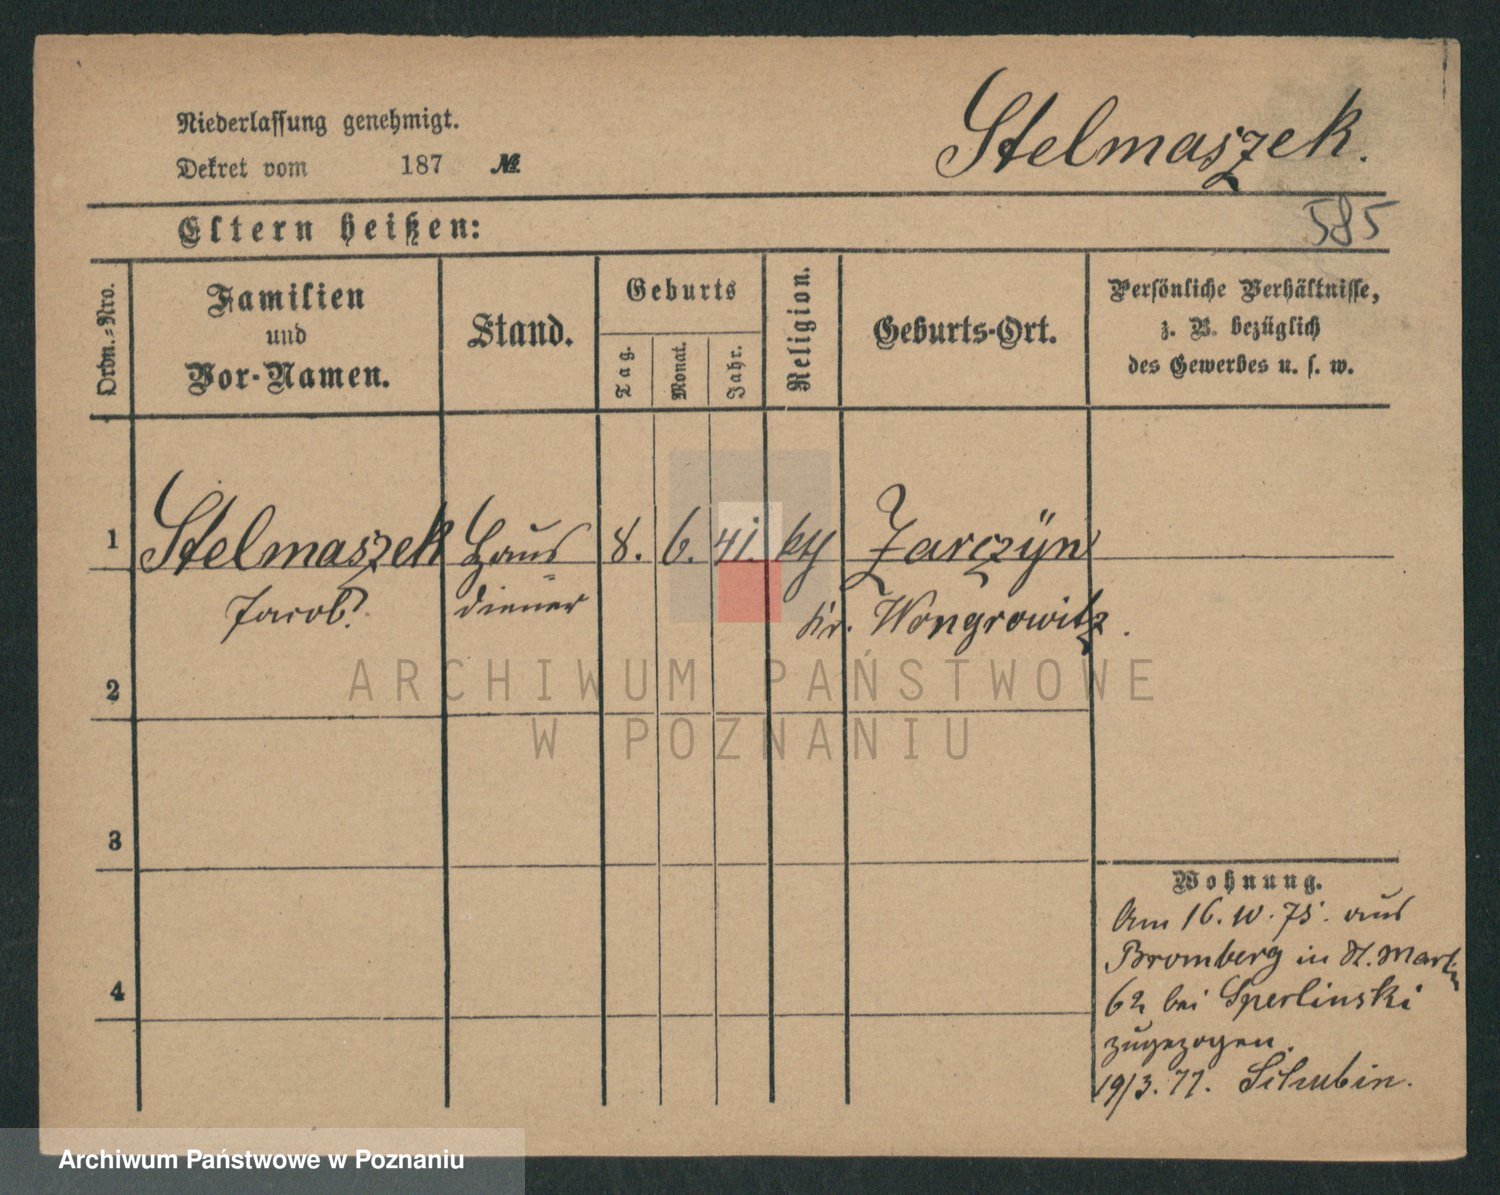 Niederlassung genehmigt.
Dekret vom 187 №
Stelmaszek.
585
Eltern heißen:
Ordn.-Nro.
Familien
und
Vor-Namen.
Stand.
Geburts
Tag.
Monat.
Jahr.
Religion.
Geburts-Ort.
Persönliche Verhältnisse,
z. B. bezüglich
des Gewerbes u. s. w.
1 Stelmaszek Haus 8. 6. 41. Zarczÿn
Jacob diener Kr. Wongrowitz.
2
3
4
Wohnung.
Am 16. 10. 75. aus
Bromberg in St. Martin
62 bei Sperlinski
zugezogen.
19/3. 77. Schubin.
ARCHIWUM PAŃSTWOWE
W POZNANIU
Archiwum Państwowe w Poznaniu